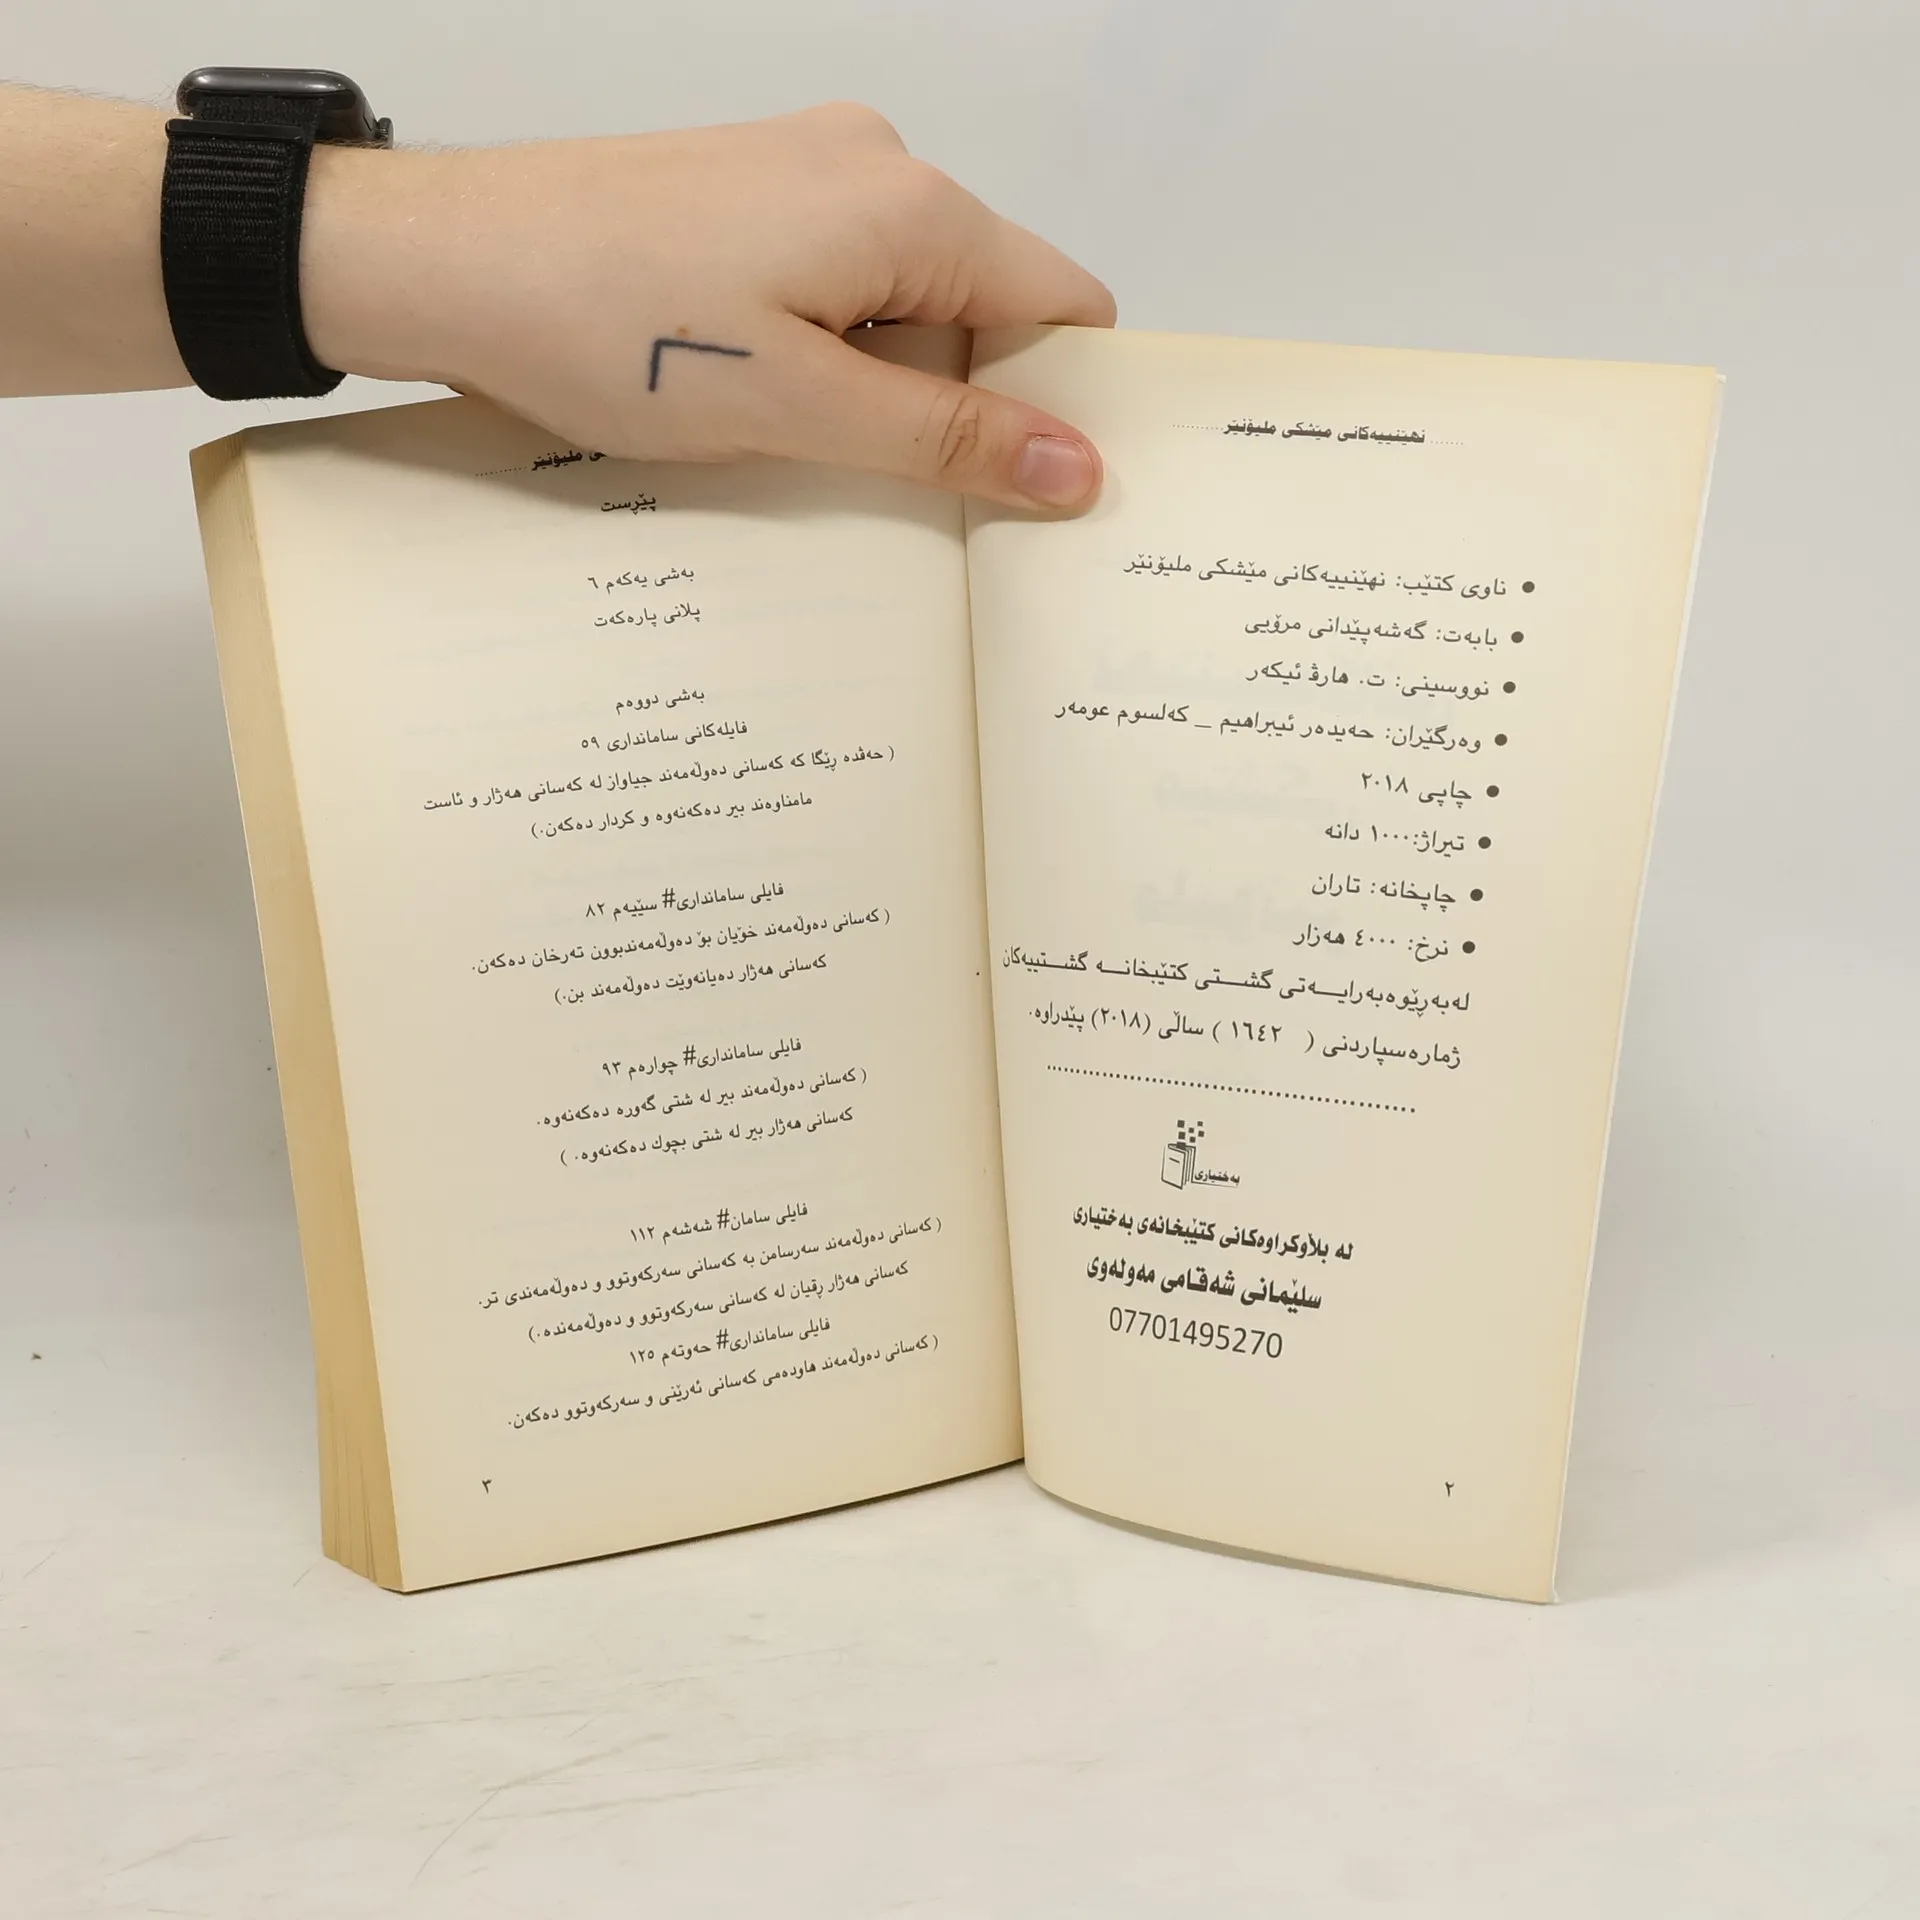 ....... نهێنییەکانی مێشکی ملیۆنێر...........
● ناوی کتێب: نهێنییەکانی مێشکی ملیۆنێر
● بابەت: گەشەپێدانی مرۆیی
● نووسینی: ت. هارڤ ئیکەر
● وەرگێران: حەیدەر ئیبراهیم _ کەلسوم عومەر
● چاپی ٢٠١٨
● تیراژ:١٠٠٠ دانە
● چاپخانە: تاران
● نرخ: ٤٠٠٠ هەزار
لەبەڕێوەبەرایـــەتی گشـــتی کتێبخانـــە گشـــتییەکان
ژمارەسپاردنی ( ١٦٤٢ ) ساڵی (٢٠١٨) پێدراوە.
بەختیاری
لە بڵاوکراوەکانی کتێبخانەی بەختیاری
سلێمانی شەقامی مەولەوی
07701495270
٢
ملیۆنێر...........
پێڕست
بەشی یەکەم ٦
پلانی پارەکەت
بەشی دووەم
فایلەکانی سامانداری ٥٩
( حەڤدە ڕێگا کە کەسانی دەوڵەمەند جیاواز لە کەسانی هەژار و ئاست
مامناوەند بیر دەکەنەوە و کردار دەکەن.)
فایلی سامانداری# سێیەم ٨٢
( کەسانی دەوڵەمەند خۆیان بۆ دەوڵەمەندبوون تەرخان دەکەن.
کەسانی هەژار دەیانەوێت دەوڵەمەند بن.)
فایلی سامانداری# چوارەم ٩٣
( کەسانی دەوڵەمەند بیر لە شتی گەورە دەکەنەوە.
کەسانی هەژار بیر لە شتی بچوك دەکەنەوە. )
فایلی سامان# شەشەم ١١٢
( کەسانی دەوڵەمەند سەرسامن بە کەسانی سەرکەوتوو و دەوڵەمەندی تر.
کەسانی هەژار ڕقیان لە کەسانی سەرکەوتوو و دەوڵەمەندە.)
فایلی سامانداری# حەوتەم ١٢٥
( کەسانی دەوڵەمەند هاودەمی کەسانی ئەرێنی و سەرکەوتوو دەکەن.
٣